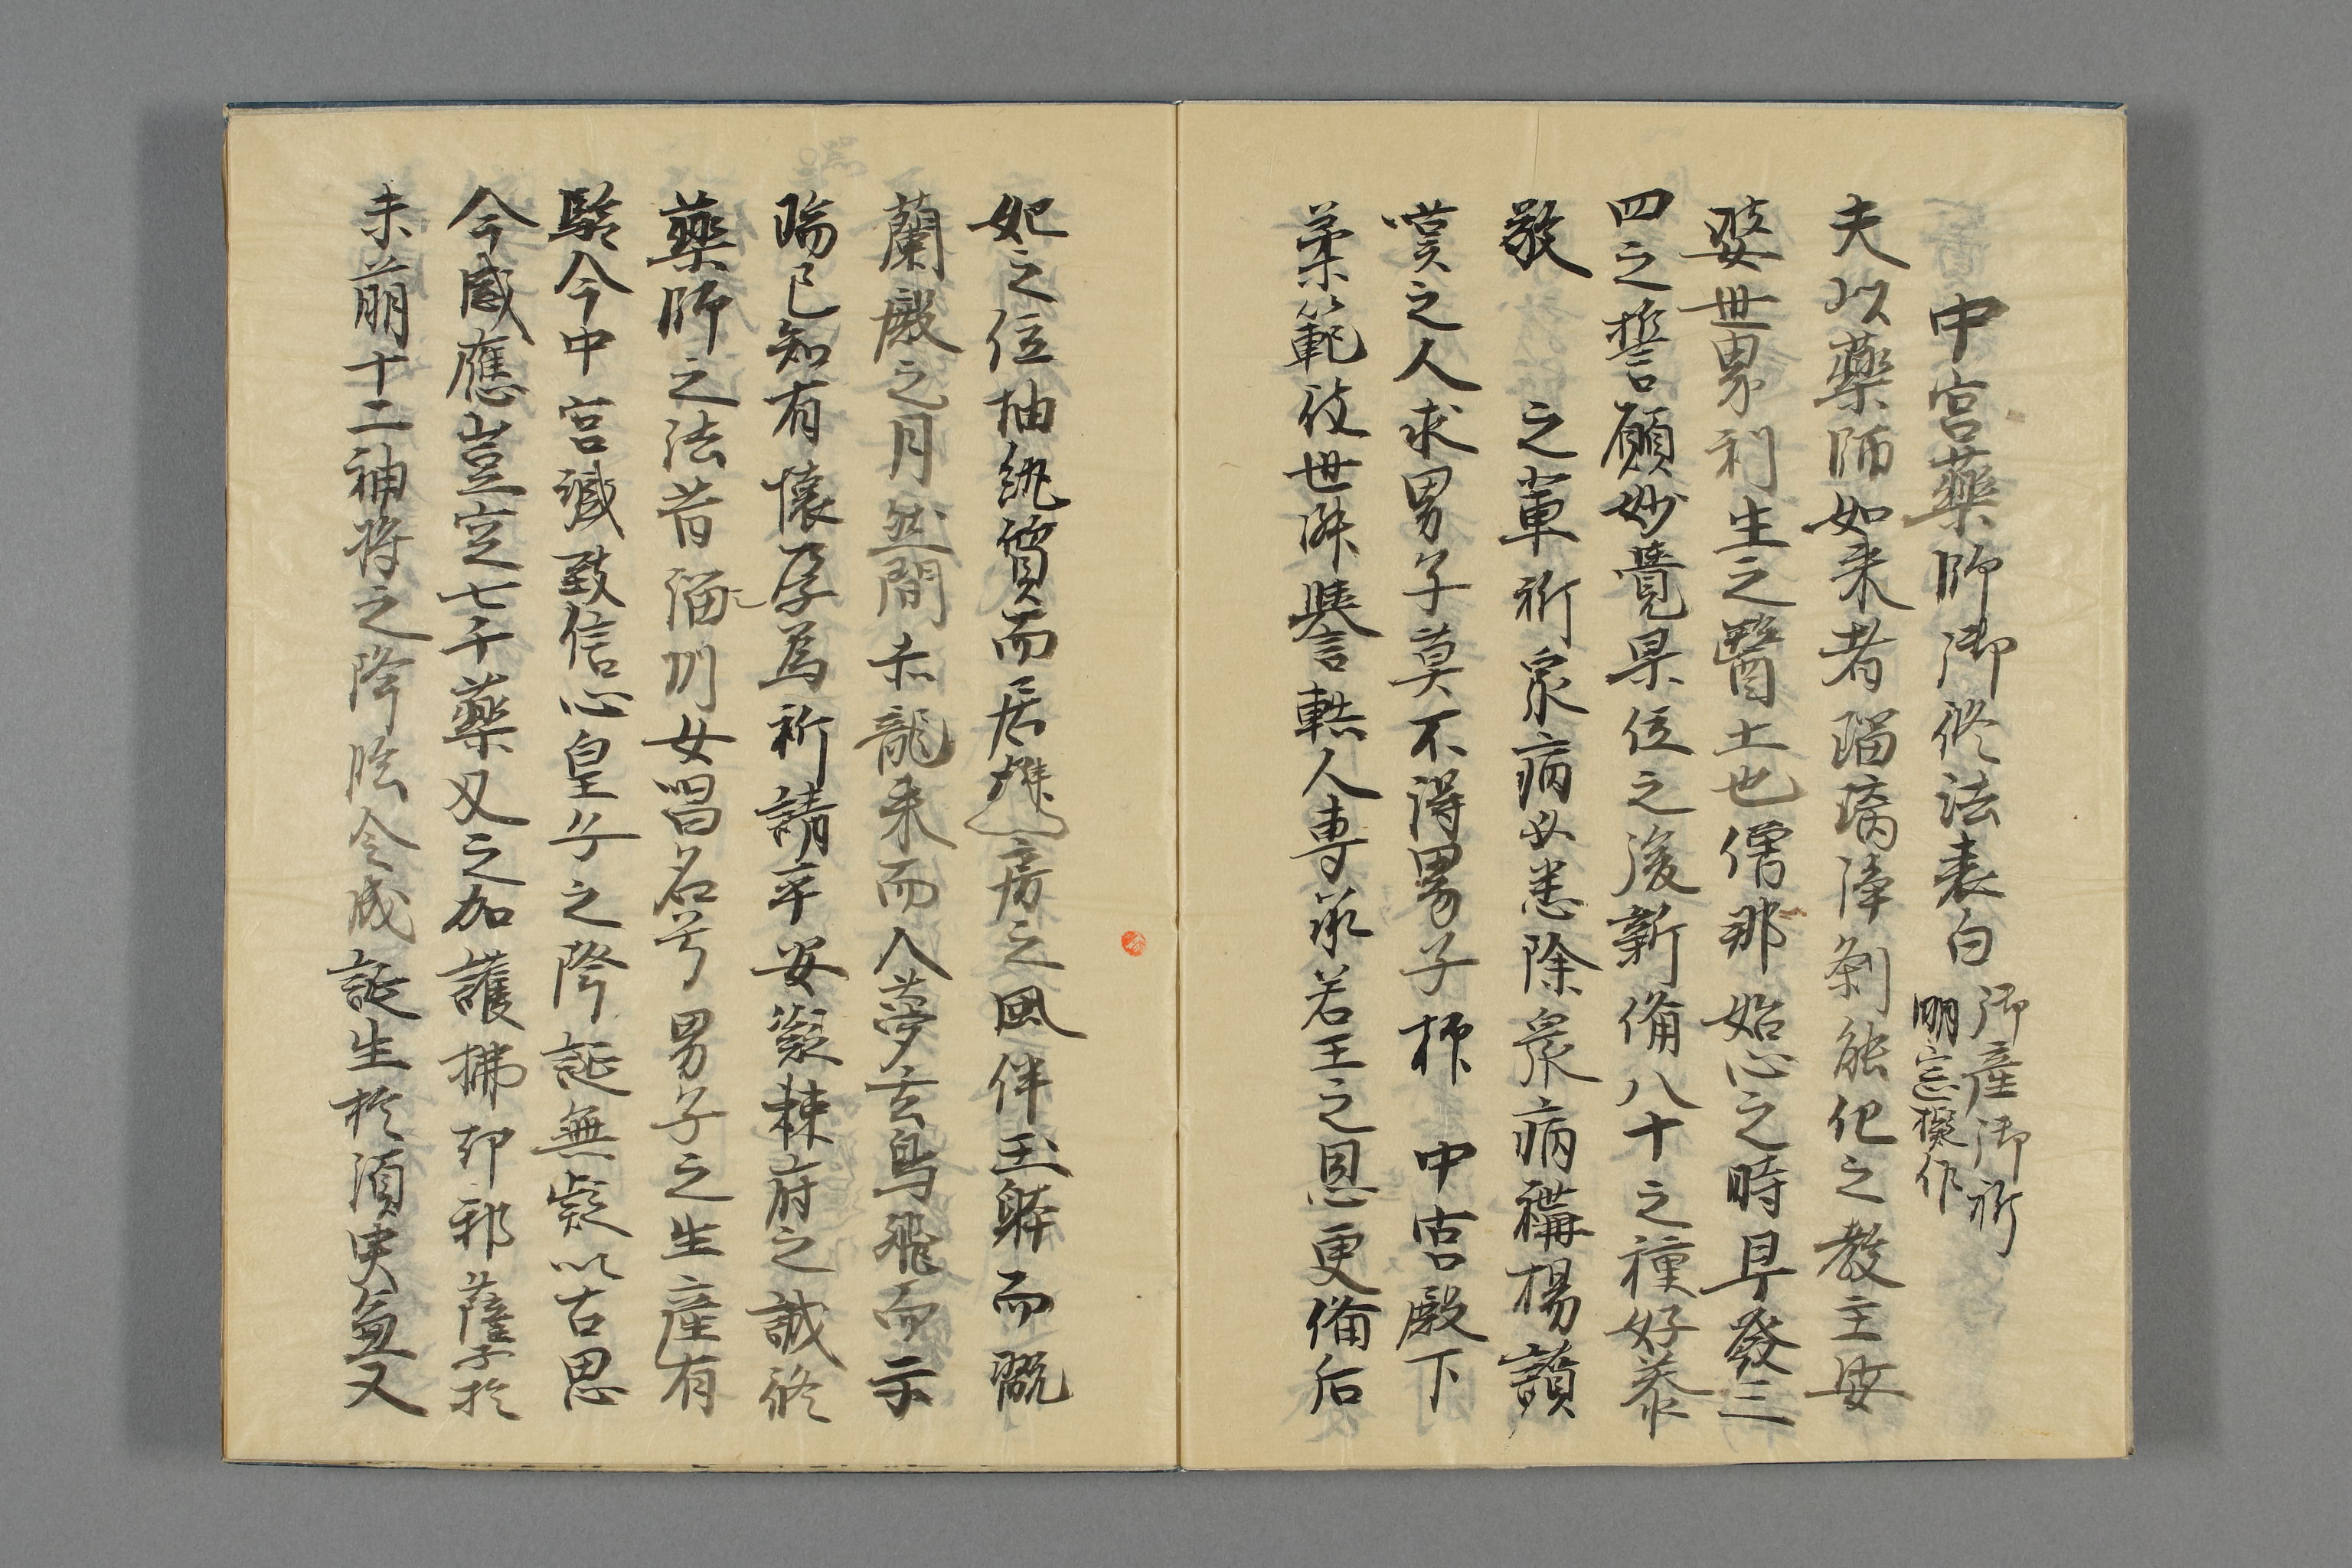 中宮藥師御修法表白 御産御祈
明宗擬作
夫以藥師如来者瑠璃浄剎能化之教主娑
婆世界利生之醫士也僧那始心之時早發三
四之誓願妙覺果位之後新備八十之種好恭
敬　之輩祈衆病必悉除衆病稱揚讃
嘆之人求男子莫不得男子抑　中宮殿下
柔範被世淑譽軼人専承君王之恩更備后
妃之位抽紈質而居椒房之風伴玉躰而翫
蘭殿之月然間赤龍来而入夢玄鳥飛而示
瑞已知有懐孕為祈請平安凝棘府之誠修
藥師之法昔淄州女唱名号男子之生産有
驗今中宮誠致信心皇子之降誕無疑以古思
今感應豈空七千藥叉之加護拂却邪孽於
未萌十二神将之降臨令成誕生於須臾兼又